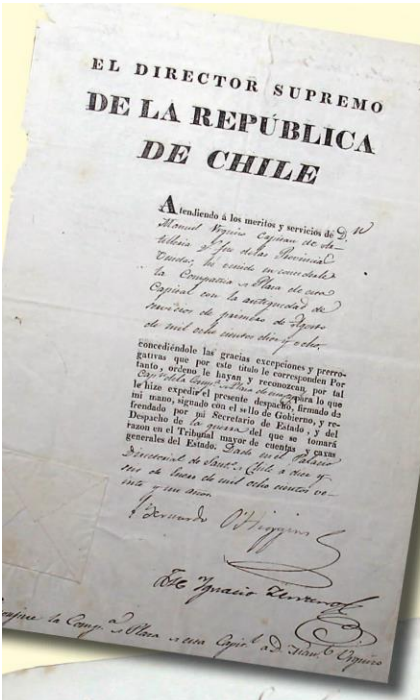 EL DIRECTOR SUPREMO
DE LA REPÚBLICA
DE CHILE
Atendiendo á los meritos y servicios de D.n
Manuel Urquizo Capitan de Ar-
tilleria
he venido en concederle
la Compañia Plaza de esa
Capital con la antiguedad de
servicios de primero de Agosto
de mil ocho cientos diez y ocho.
concediéndole las gracias excepciones y prerro-
gativas que por este titulo le corresponden Por
tanto, ordeno le hayan y reconozcan por tal
para lo que
le hize expedir el presente despacho, firmado de
mi mano, signado con el sello de Gobierno, y re-
frendado por mi Secretario de Estado, y del
Despacho de la guerra del que se tomará
razon en el Tribunal mayor de cuentas y caxas
generales del Estado. Dado en el Palacio
Directorial de Chile á diez y
de Enero de mil ocho cientos ve-
inte y un años.
Bernardo O'Higgins
Ignacio Zenteno
la Comp.a Plaza